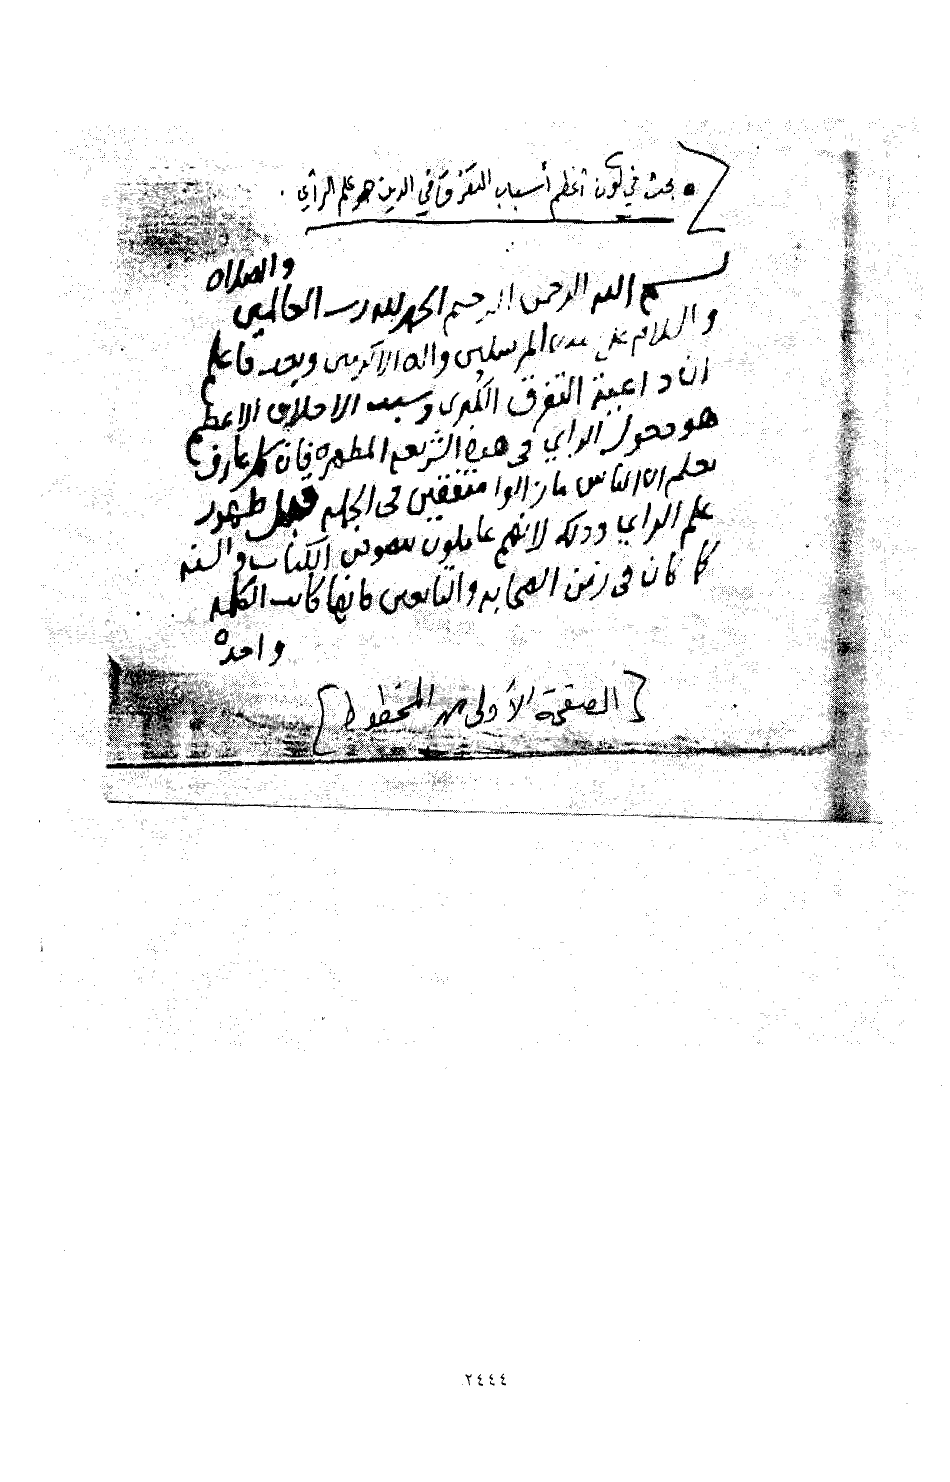 بحث في كون أعظم أسباب التفرق في الدين هو علم الرأي .
بسم الله الرحمن الرحيم الحمد لله رب العالمين والصلاه
والسلام على سيد المرسلين واله الاكرمين وبعد فاعلم
ان داعية التفرق الكبرى وسبب الاختلاف الاعظم
هو دخول الراي في هذه الشريعه المطهره فان كل عارف
يعلم ان الناس ما زالوا متفقين في الجمله قبل ظهور
علم الراي وذلك لانهم عاملون بنصوص الكتاب والسنه
كما كان في زمن الصحابه والتابعين فانها كانت الكلمه
واحده
[الصفحة الأولى من المخطوط]
٢٤٤٤